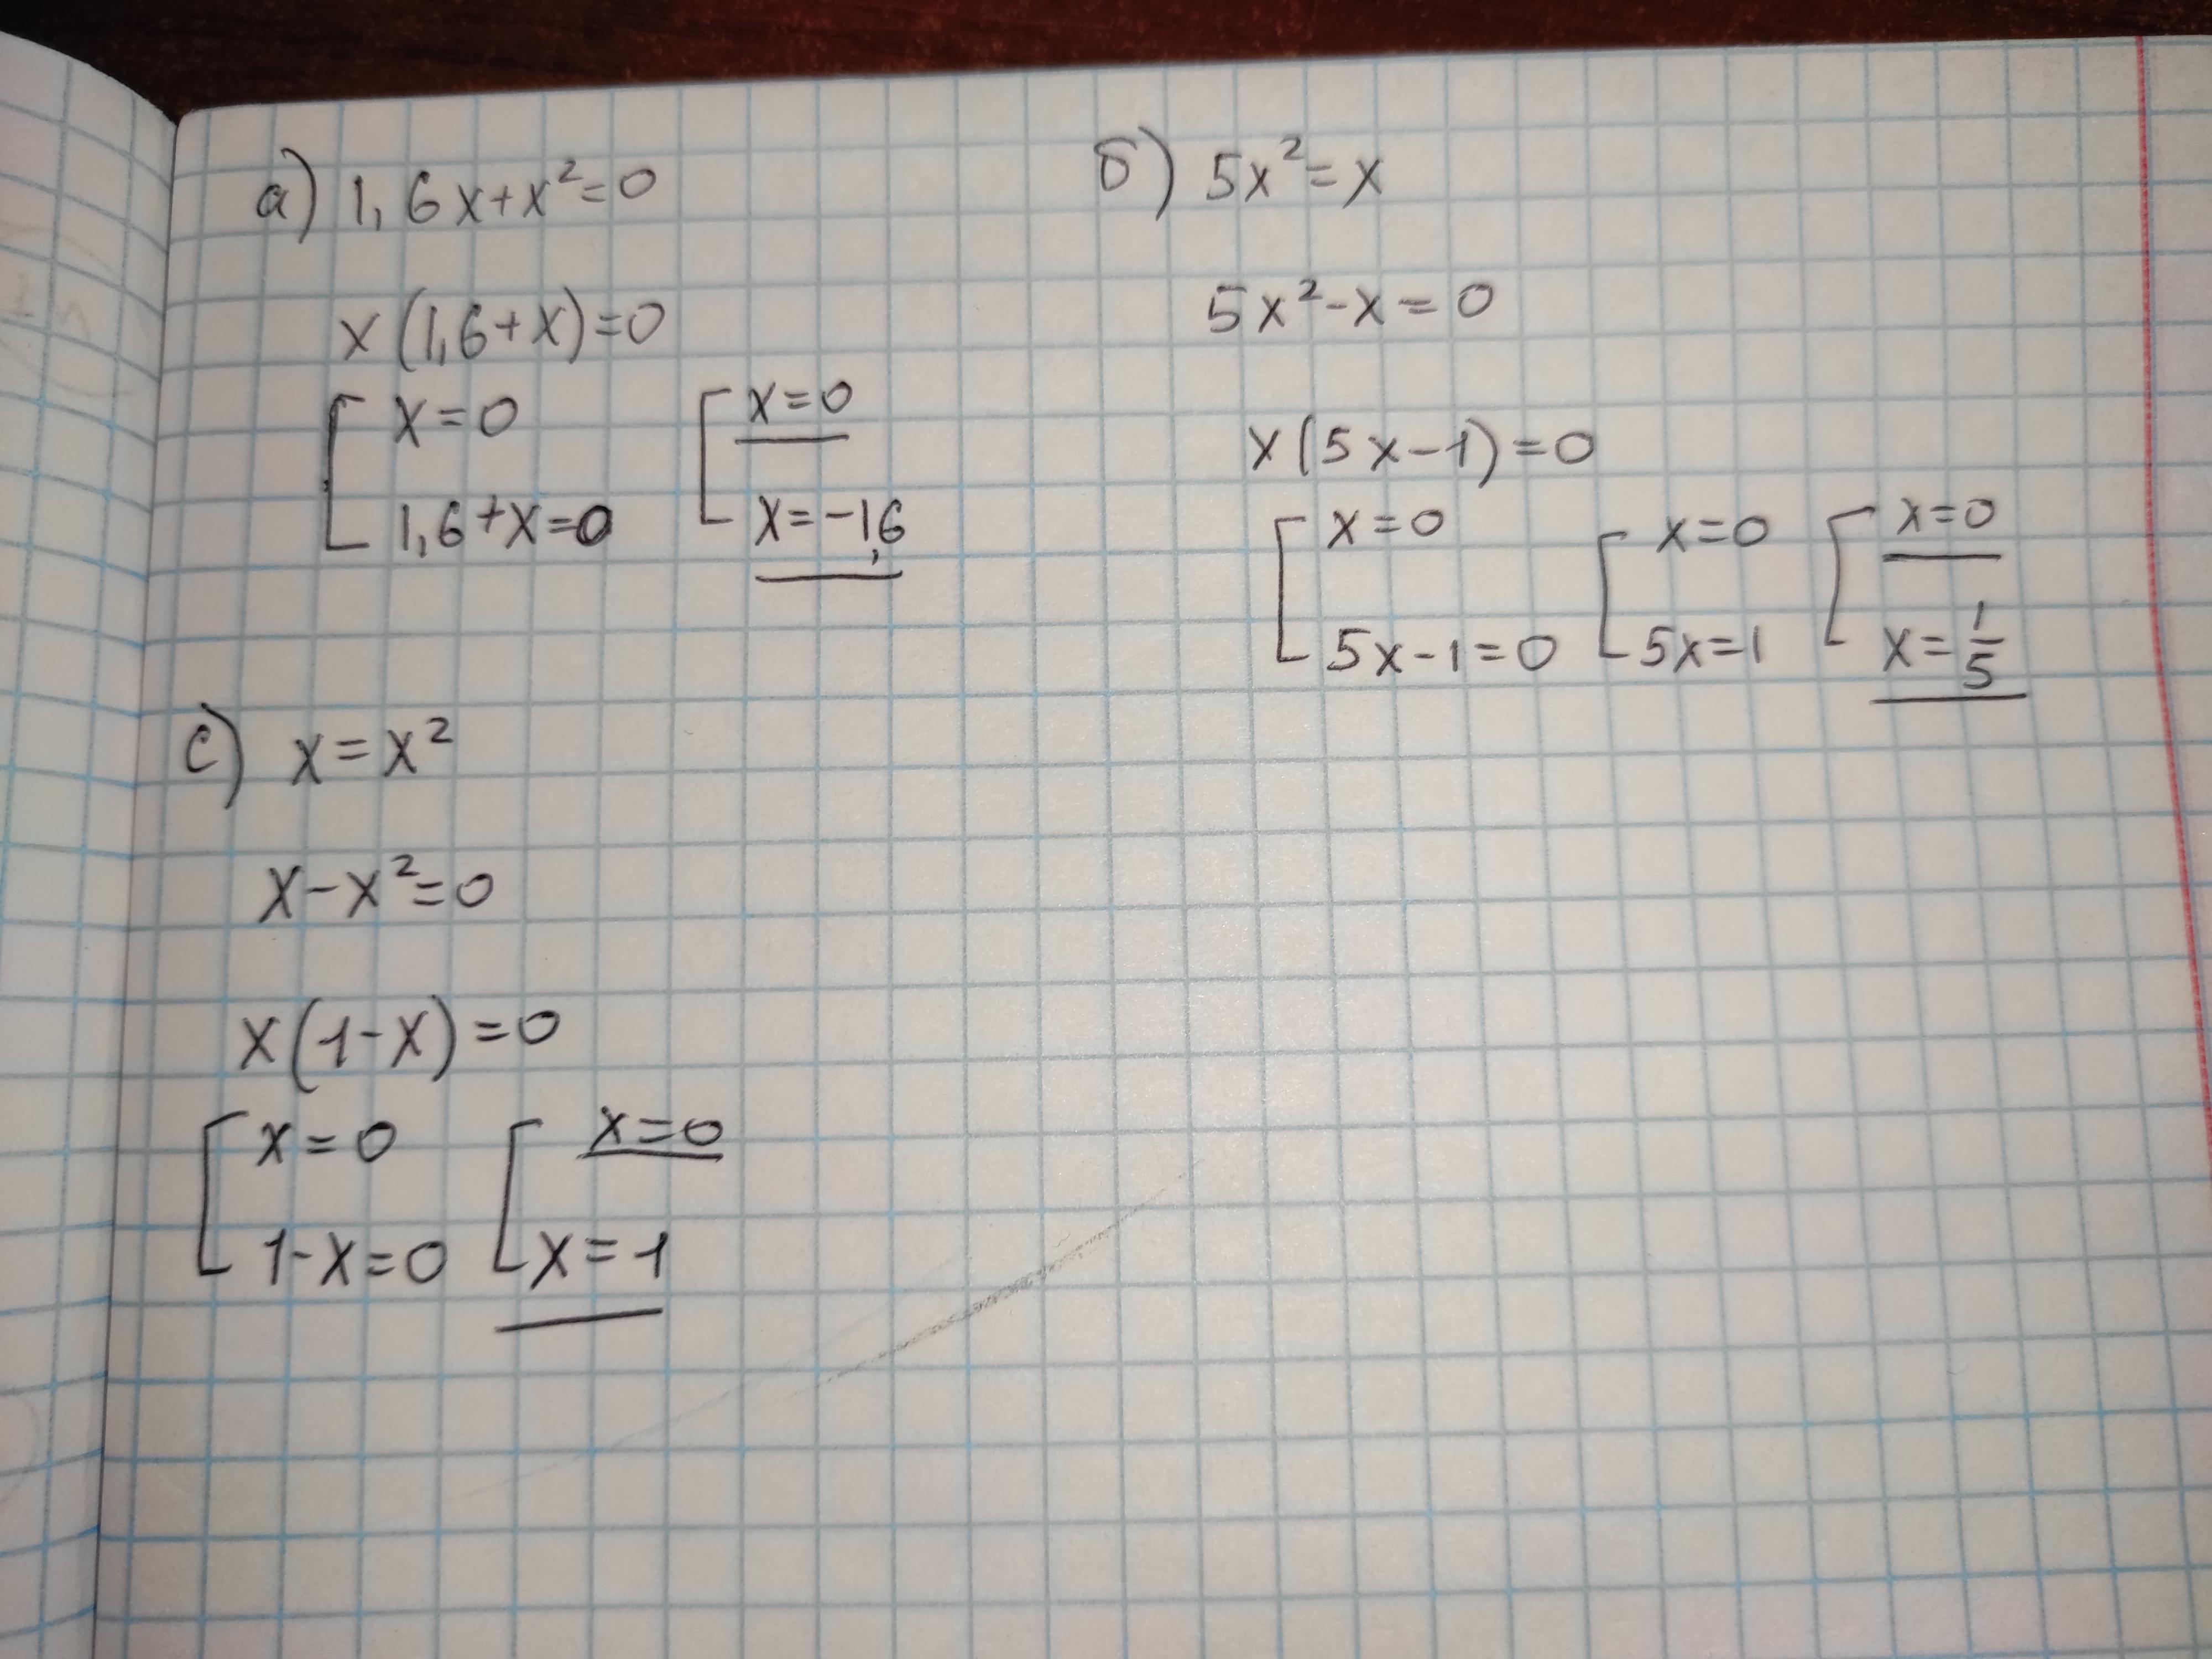 а) 1,6x+x²=0
x(1,6+x)=0
[ x=0 [ x=0
1,6+x=0 x=-1,6
б) 5x²=x
5x²-x=0
x(5x-1)=0
[ x=0 [ x=0 [ x=0
5x-1=0 5x=1 x=1/5
с) x=x²
x-x²=0
x(1-x)=0
[ x=0 [ x=0
1-x=0 x=1